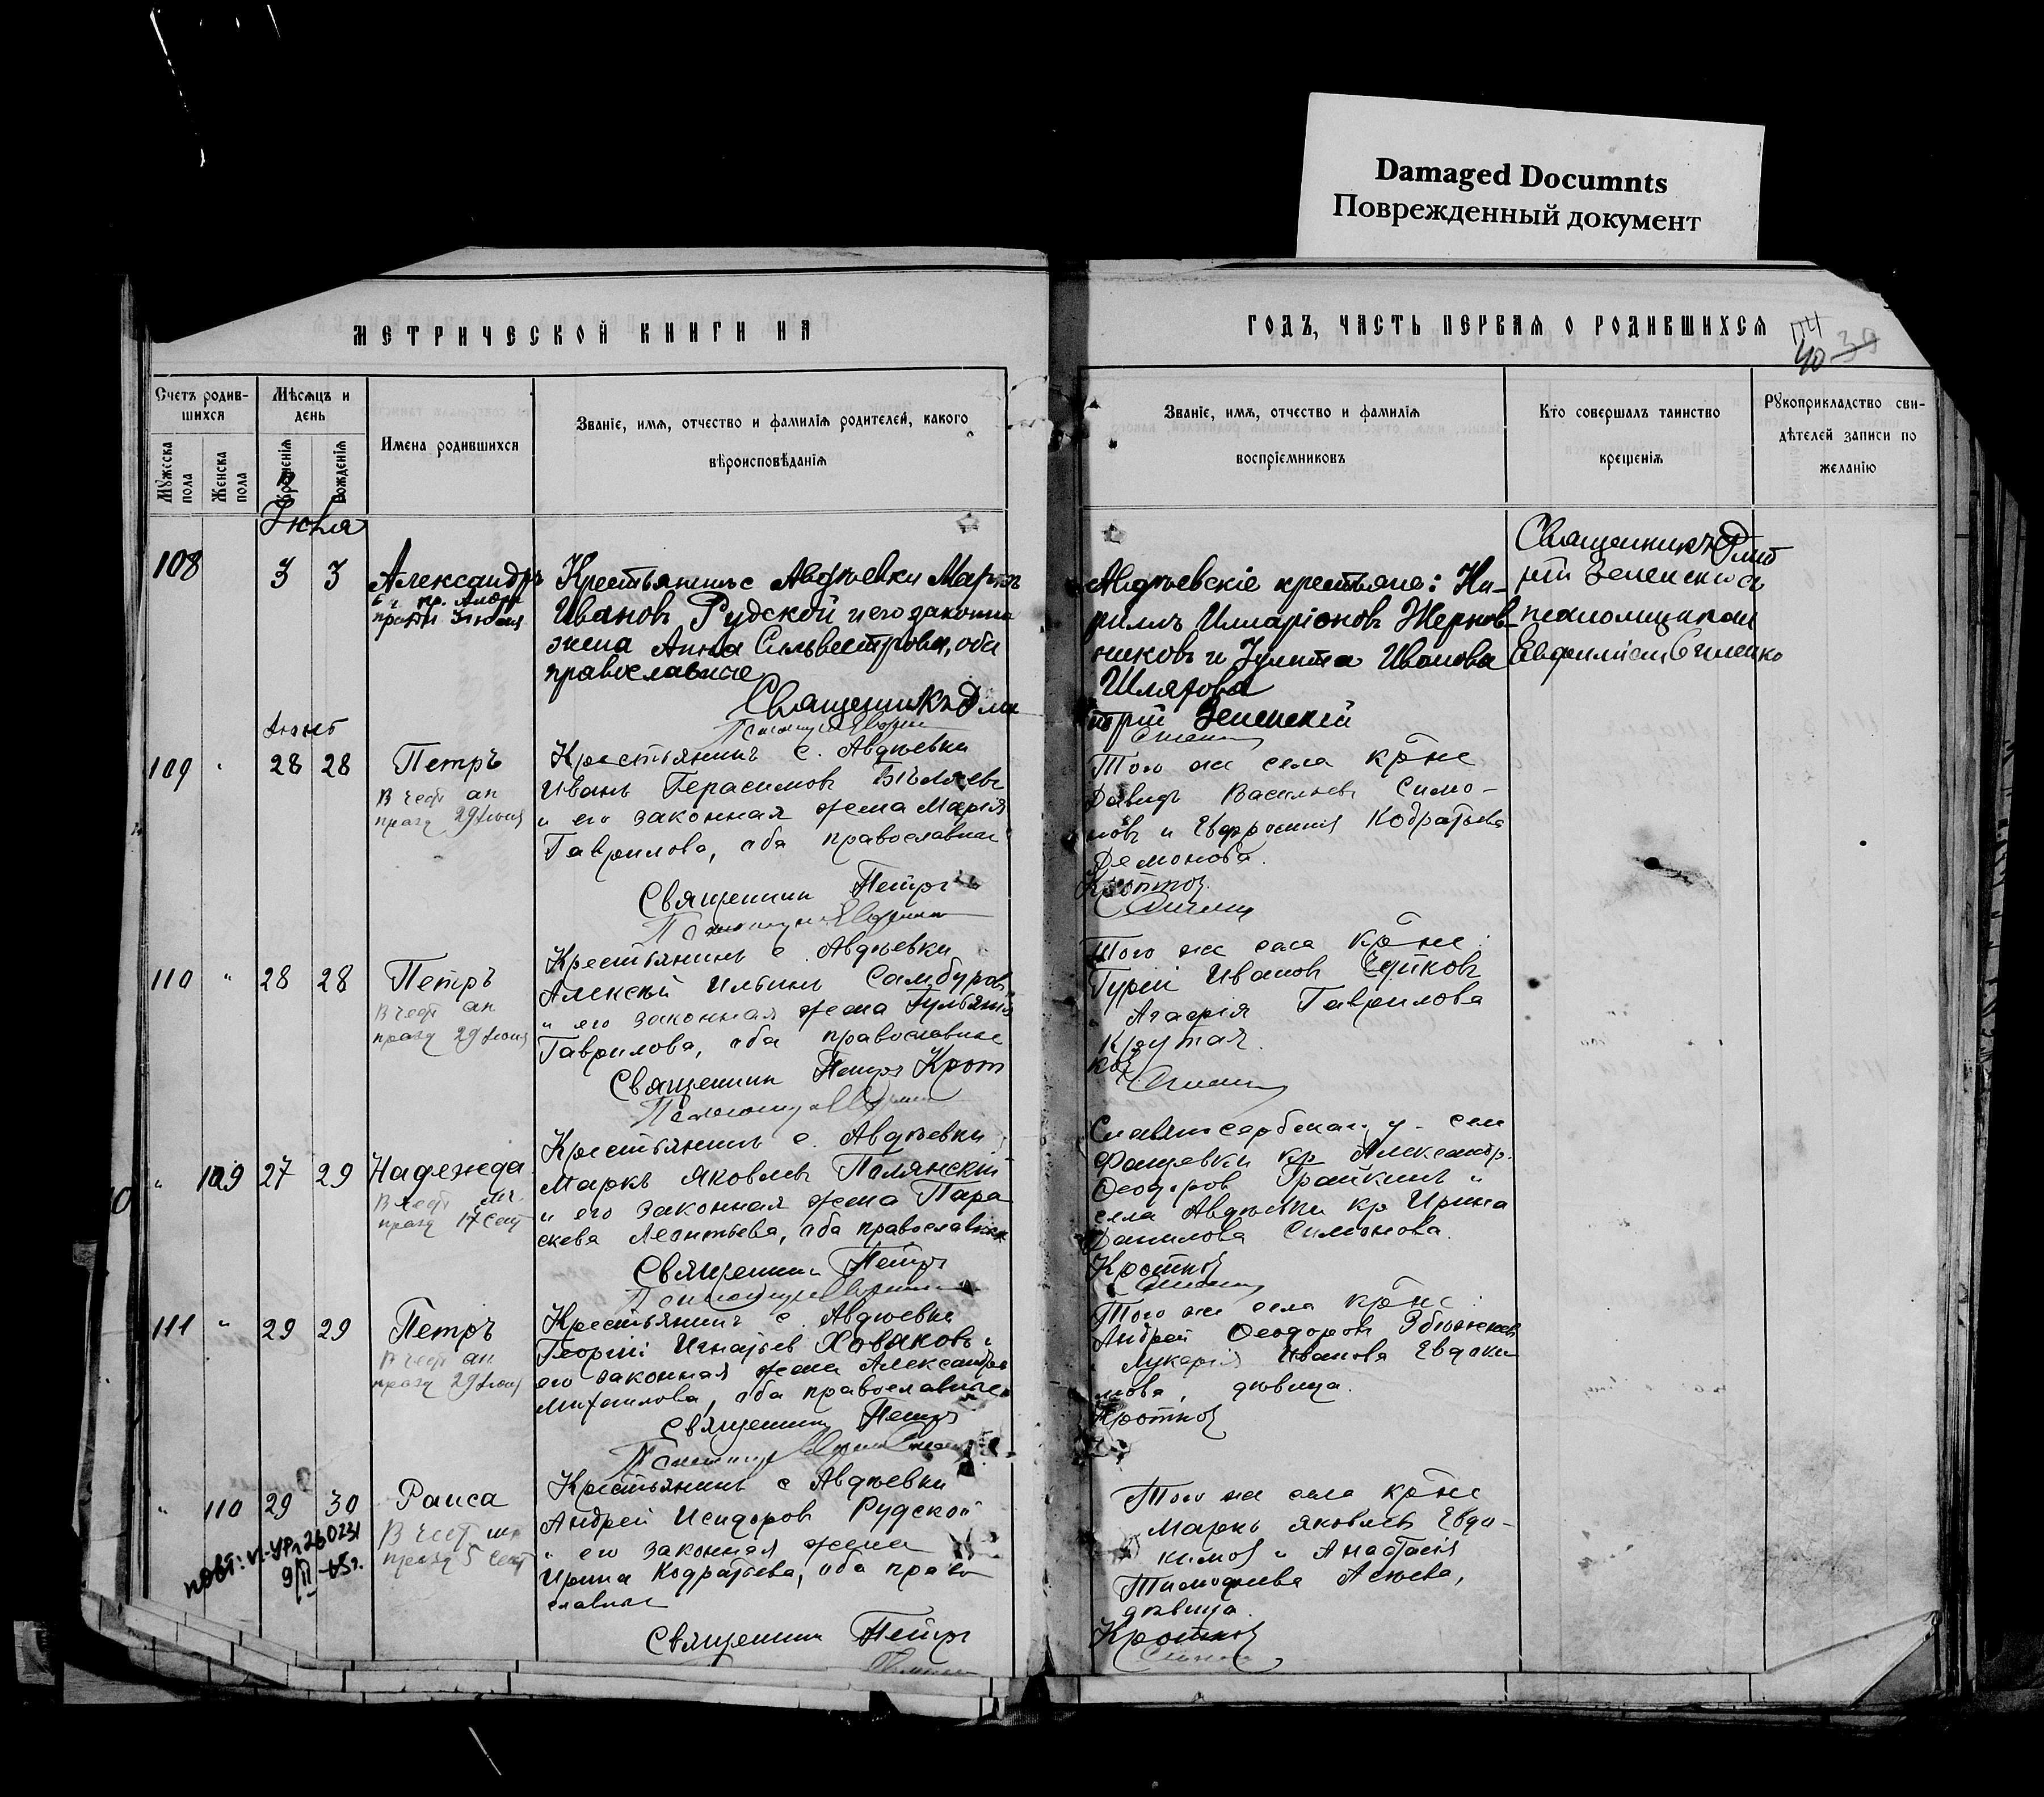 Damaged Documnts
Поврежденный документ
МЕТРИЧЕСКОЙ КНИГИ НА
ГОДЪ, ЧАСТЬ ПЕРВАЯ О РОДИВШИХСЯ
40 39
Счетъ родив-
шихся
Мужеска пола
Женска пола
Мѣсяцъ и
день
Рожденія
Крещенія
Имена родившихся
Званіе, имя, отчество и фамилія родителей, какого
вѣроисповѣданія
Званіе, имя, отчество и фамилія
воспріемниковъ
Кто совершалъ таинство
крещенія
Рукоприкладство сви-
дѣтелей записи по
желанію
Іюля
108 3 3 Александръ
Крестьянинъ с Авдѣевки Маркъ
Ивановъ Рудской и его законна
жена Анна Сильвестрова, оба
православные
Священникъ Дми
Авдѣевскіе крестьяне: Ки-
риллъ Илларіоновъ Жернов-
никовъ и Іулита Иванова
Шляхова
трій Зеленскій
Священникъ Дмит
рій Зеленскій съ
псаломщикомъ
Іюнь
109 " 28 28 Петръ
В чест ап
празд 29 Іюня
Крестьянинъ с. Авдѣевки
Иванъ Герасимовъ Бѣляевъ
и его законная жена Марія
Гаврилова, оба православные
Священник Петръ
Того же села кр-не
Давидъ Васильевъ Симо-
новъ и Евфросинія Кодратьева
Демонова.
Кротков
110 " 28 28 Петръ
В чест ап
празд 29 Іюня
Крестьянинъ с. Авдѣевки
Алексѣй Ильинъ Самбуровъ
и его законная жена Іульянія
Гаврилова, оба православные
Священник Петръ Крот
Того же села кр-не:
Гурій Ивановъ
и Агафія Гаврилова
Крутая.
ков
" 109 27 29 Надежда
В чест мч.
празд 17 Сент
Крестьянинъ с. Авдѣевки
Маркъ Яковлевъ Полянскій
и его законная жена Пара
скева Леонтьева, оба православные
Священник Петръ
Славяносербскаго у. села
кр Александр.
Ѳеодоров Грайкинъ и
села Авдѣевки кр Ирина
Данилова Симонова.
Кротков
111 " 29 29 Петръ
В чест ап
празд 29 Іюня
Крестьянинъ с. Авдѣевки
Георгій Игнатьев Ховаковъ и
его законная жена Александра
Михайлова, оба православные
Священник Петръ
Того же села кр-не:
Андрей Ѳеодоровъ
и Лукерія Иванова Евдоки
мова, дѣвица.
Кротков
" 110 29 30 Раиса
В чест мч
празд 5 Сент
повт: V-УР 260231
9/II-45г.
Крестьянинъ с Авдѣевки
Андрей Исидоров Рудской
и его законная жена
Ирина Кодратьева, оба право
славные
Священник Петръ
Того же села кр-не
Маркъ Яковлевъ Евдо-
кимов и Анастасія
Тимофѣева Асѣева,
дѣвица.
Кротков